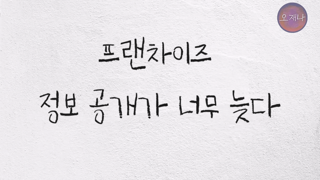 오개나
프랜차이즈
정보 공개가 너무 늦다